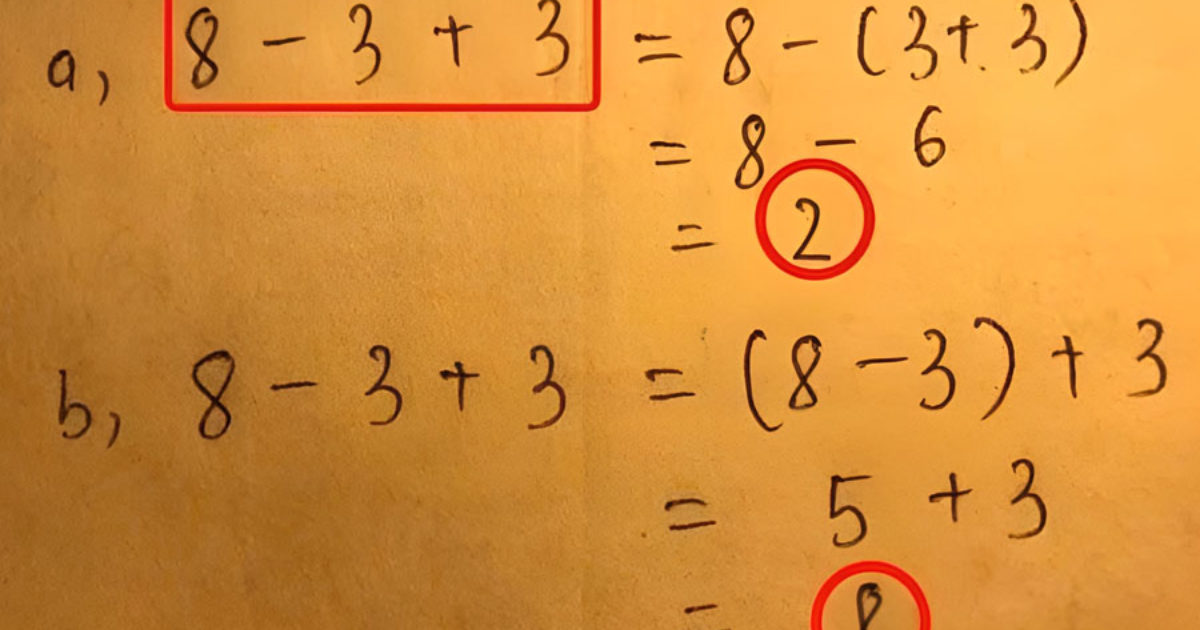 a, 8 - 3 + 3 = 8 - (3 + 3)
= 8 - 6
= 2
b, 8 - 3 + 3 = (8 - 3) + 3
= 5 + 3
= 8